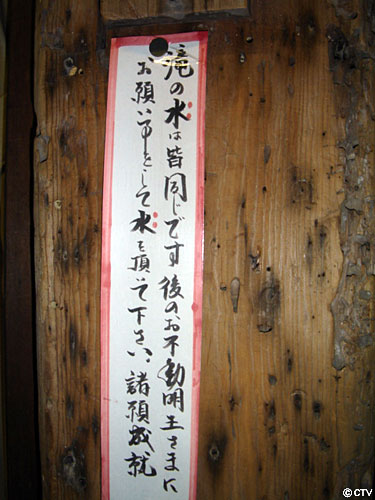 滝の水は皆同じです後のお不動明王さまに
お願い事をして水を頂いて下さい、諸願成就
©CTV